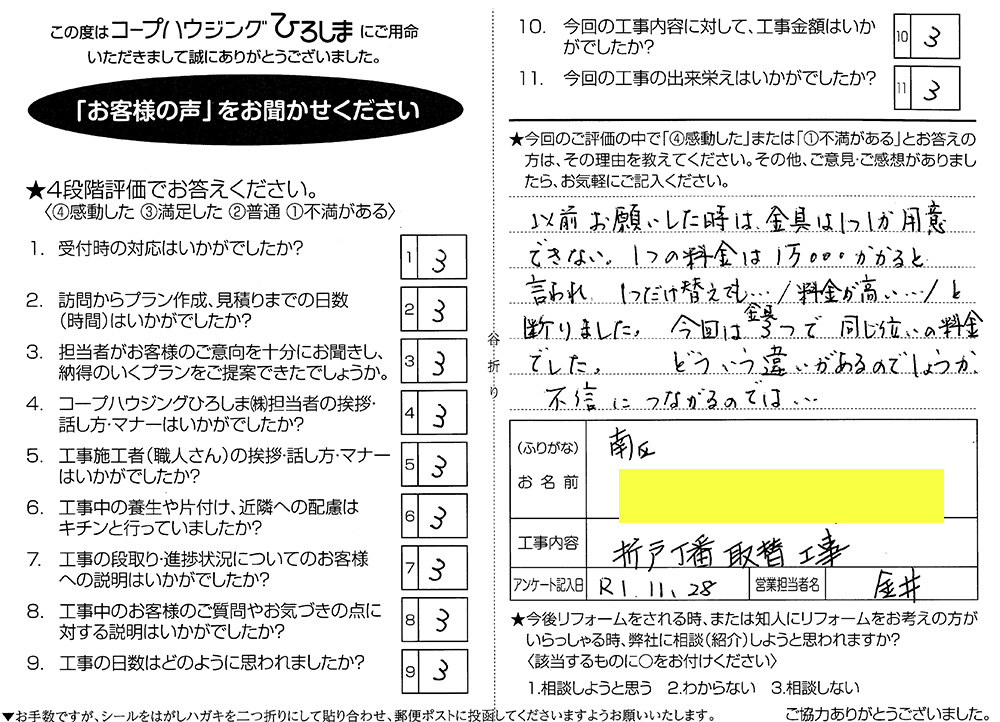 この度はコープハウジングひろしまにご用命
いただきまして誠にありがとうございました。
「お客様の声」をお聞かせください
★4段階評価でお答えください。
〈④感動した ③満足した ②普通 ①不満がある〉
1. 受付時の対応はいかがでしたか?
1 3
2. 訪問からプラン作成、見積りまでの日数
(時間)はいかがでしたか?
2 3
3. 担当者がお客様のご意向を十分にお聞きし、
納得のいくプランをご提案できたでしょうか。
3 3
4. コープハウジングひろしま㈱担当者の挨拶・
話し方・マナーはいかがでしたか?
4 3
5. 工事施工者(職人さん)の挨拶・話し方・マナー
はいかがでしたか?
5 3
6. 工事中の養生や片付け、近隣への配慮は
キチンと行っていましたか?
6 3
7. 工事の段取り・進捗状況についてのお客様
への説明はいかがでしたか?
7 3
8. 工事中のお客様のご質問やお気づきの点に
対する説明はいかがでしたか?
8 3
9. 工事の日数はどのように思われましたか?
9 3
▼お手数ですが、シールをはがしハガキを二つ折りにして貼り合わせ、郵便ポストに投函してくださいますようお願いいたします。
谷折り
10. 今回の工事内容に対して、工事金額はいか
がでしたか?
10 3
11. 今回の工事の出来栄えはいかがでしたか?
11 3
★今回のご評価の中で「④感動した」または「①不満がある」とお答えの
方は、その理由を教えてください。その他、ご意見・ご感想がありまし
たら、お気軽にご記入ください。
以前お願いした時は、金具は1つ1つが用意
できない。1つの料金は1万000かかると
言われ、1つだけ替えても…/料金が高い…/と
断りました。今回は金具3つで同じ位いの料金
でした。 どういう違いがあるのでしょうか、
不信につながるのでは…
(ふりがな)
お名前
南区
工事内容
折戸丁番取替工事
アンケート記入日
R1.11.28
営業担当者名
金井
★今後リフォームをされる時、または知人にリフォームをお考えの方が
いらっしゃる時、弊社に相談(紹介)しようと思われますか?
〈該当するものに○をお付けください〉
1.相談しようと思う 2.わからない 3.相談しない
ご協力ありがとうございました。